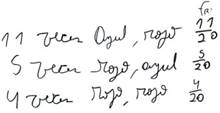 fr.
11 veces Azul, rojo 11/20
5 veces rojo, azul 5/20
4 veces rojo, rojo 4/20